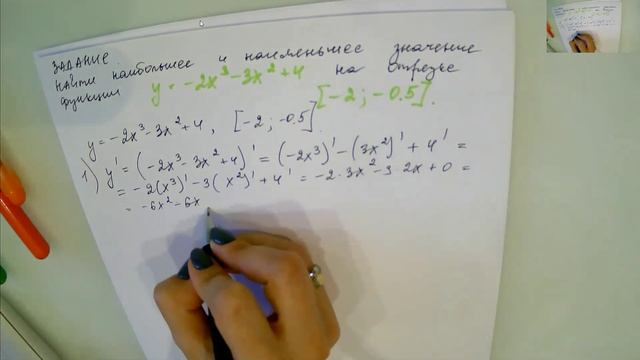 ЗАДАНИЕ.
Найти наибольшее и наименьшее значение
функции y = -2x³-3x²+4 на отрезке
[-2; -0.5].
y = -2x³-3x²+4, [-2; -0.5].
1) y' = (-2x³-3x²+4)' = (-2x³)' - (3x²)' + 4' =
= -2(x³)' - 3(x²)' + 4' = -2·3x² - 3·2x + 0 =
= -6x² - 6x